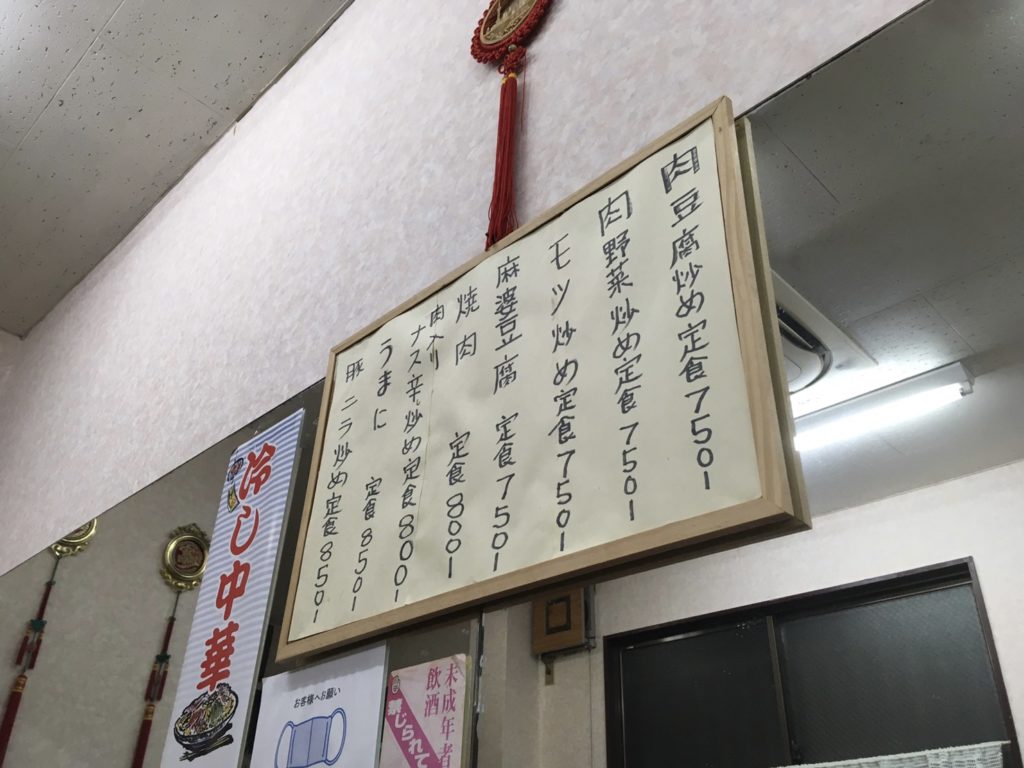 肉豆腐炒め定食750-
肉野菜炒め定食750-
モツ炒め定食750-
麻婆豆腐 定食750-
焼肉 定食800-
肉入り
ナス辛炒め定食800-
うまに 定食850-
豚ニラ炒め定食850-
冷し中華
お客様へお願い
未成年者
飲酒
禁じられて